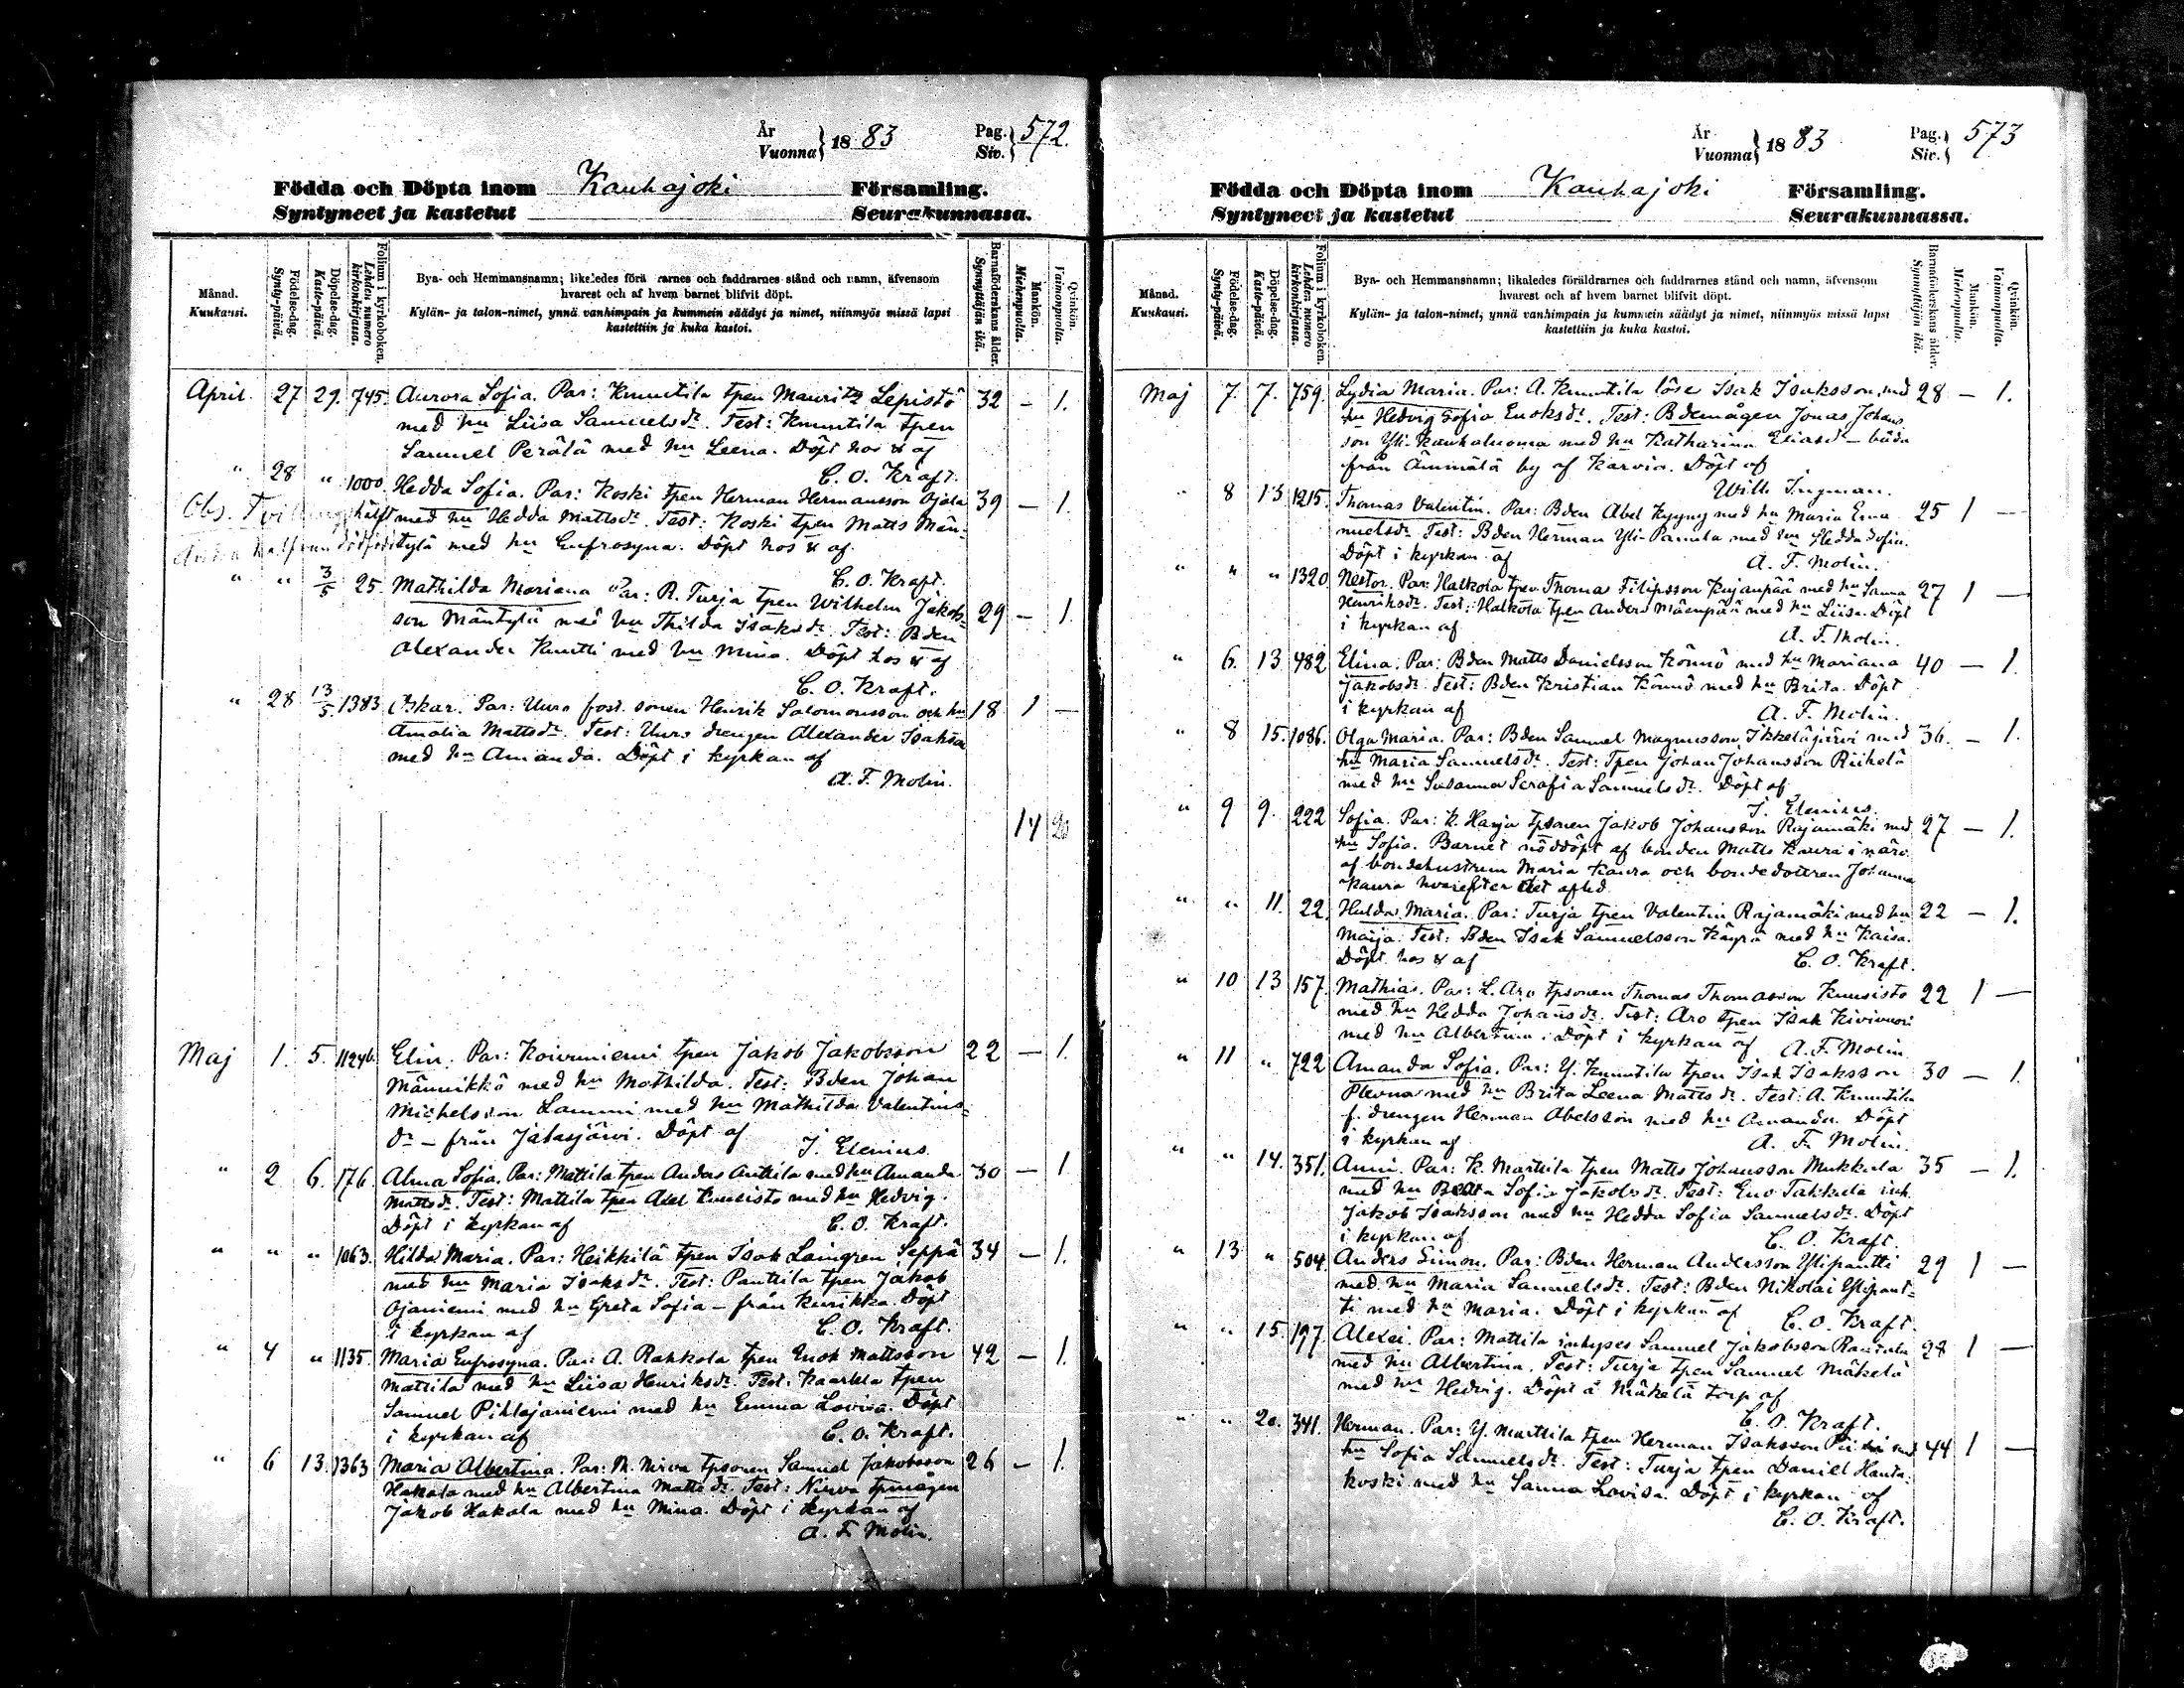 År
Vuonna } 1883
Pag.
Siv. } 572.
Födda och Döpta inom Kauhajoki Församling.
Syntyneet ja kastetut Seurakunnassa.
Månad.
Kuukausi.
Födelse-dag.
Synty-päivä.
Döpelse-dag.
Kaste-päivä.
Folium i kyrkoboken.
Lehden numero kirkonkirjassa.
Bya- och Hemmansnamn; likaledes föräldrarnes och faddrarnes stånd och namn, äfvensom
hvarest och af hvem barnet blifvit döpt.
Kylän- ja talon-nimet, ynnä vanhimpain ja kummein säädyt ja nimet, niinmyös missä lapsi
kastettiin ja kuka kastoi.
Barnaföderskans ålder.
Synnyttäjän ikä.
Mankön.
Miehenpuolia.
Qvinkön.
Vaimonpuolia.
April. 27 29. 745. Aurora Sofia. Par: Knuutila tpen Maurits Lepistö 32 — 1.
med hu Liisa Samuelsdr. Test: Knuutila tpen
Samuel Perälä med hu Leena. Döpt hos & af
C. O. Kraft.
" 28 " 1000. Hedda Sofia. Par: Koski tpen Herman Hermansson Ojala 39 — 1.
Obs. Tvillinghälft med hu Hedda Mattsdr. Test: Koski tpen Matts Män-
tylä med hu Eufrosyna. Döpt hos & af
C. O. Kraft.
" " 3/5 25. Mathilda Mariana Par: R. Turja tpen Wilhelm Jakobs- 29 — 1.
son Mäntylä med hu Thilda Isaksdr. Test: Bden
Alexander Knutti med hu Mina. Döpt hos & af
C. O. Kraft.
" 28 13/5. 1383 Oskar. Par: Uuro fost. sonen Henrik Salomonsson och hu 18 1 —
Amalia Mattsdr. Test: Uuro drengen Alexander Isaksson
med hu Amanda. Döpt i kyrkan af
A. F. Molin.
14 20
Maj 1. 5. 1124b. Elin. Par: Koivuniemi tpen Jakob Jakobsson 22 — 1.
Männikkö med hu Mathilda. Test: Bden Johan
Michelsson Lammi med hu Mathilda Valentins-
dr — från Jalasjärvi. Döpt af
J. Elenius.
" 2 6. 176. Alma Sofia. Par: Mattila tpen Anders Anttila med hu Amanda 30 — 1
Mattsdr. Test: Mattila tpen Abel Kuusisto med hu Hedvig.
Döpt i kyrkan af C. O. Kraft.
" " " 1063. Hilda Maria. Par: Heikkilä tpen Isak Laingren Seppä 34 — 1.
med hu Maria Isaksdr. Test: Panttila tpen Jakob
Ojaniemi med hu Greta Sofia — från Kurikka. Döpt
i kyrkan af C. O. Kraft.
" 4 " 1135. Maria Eufrosyna. Par: A. Rahkola tpen Enok Mattsson 42 — 1.
Mattila med hu Liisa Henriksdr. Test: Kaarlela tpen
Samuel Pihlajaniemi med hu Emma Lovisa. Döpt
i kyrkan af C. O. Kraft.
" 6 13. 1363 Maria Albertina. Par: N. Nirva tpsonen Samuel Jakobsson 26 — 1.
Hakala med hu Albertina Mattsdr. Test: Nirva tpmågen
Jakob Hakala med hu Mina. Döpt i kyrkan af
A. F. Molin.
År
Vuonna } 1883
Pag.
Siv. } 573
Födda och Döpta inom Kauhajoki Församling.
Syntyneet ja kastetut Seurakunnassa.
Månad.
Kuukausi.
Födelse-dag.
Synty-päivä.
Döpelse-dag.
Kaste-päivä.
Folium i kyrkoboken.
Lehden numero kirkonkirjassa.
Bya- och Hemmansnamn; likaledes föräldrarnes och faddrarnes stånd och namn, äfvensom
hvarest och af hvem barnet blifvit döpt.
Kylän- ja talon-nimet, ynnä vanhimpain ja kummein säädyt ja nimet, niinmyös missä lapsi
kastettiin ja kuka kastoi.
Barnaföderskans ålder.
Synnyttäjän ikä.
Mankön.
Miehenpuolia.
Qvinkön.
Vaimonpuolia.
Maj 7. 7. 759. Lydia Maria. Par: A. Knuutila löse Isak Isaksson med 28 — 1.
hu Hedvig Sofia Enoksdr. Test: Bdemågen Jonas Johans
son Yli-Kauhaluoma med hu Katharina Eliasdr — båda
från Ämmälä by af Karvia. Döpt af
Wilh. Ingman.
" 8 13 1215. Thomas Valentin. Par: Bden Abel Kyyny med hu Maria Ema 25 1 —
nuelsdr. Test: Bden Herman Yli-Panula med hu Hedda Sofia.
Döpt i kyrkan af A. F. Molin.
" " " 1320 Nestor. Par: Halkola tpen Thomas Filipsson Kujanpää med hu Sanna 27 1 —
Henriksdr. Test: Halkola tpen Anders Mäenpää med hu Liisa. Döpt
i kyrkan af A. F. Molin.
" 6. 13. 482 Elina. Par: Bden Matts Danielsson Könnö med hu Mariana 40 — 1.
Jakobsdr. Test: Bden Kristian Könnö med hu Brita. Döpt
i kyrkan af A. F. Molin.
" 8 15. 1086. Olga Maria. Par: Bden Samuel Magnusson Ikkeläjärvi med 36. — 1.
hu Maria Samuelsdr. Test: Tpen Johan Johansson Riihelä
med hu Susanna Serafia Samuelsdr. Döpt af
J. Elenius.
" 9 9. 222 Sofia. Par: K. Harja tpsonen Jakob Johansson Rajamäki med 27 — 1.
hu Sofia. Barnet nöddöpt af bonden Matts Kaura i närv.
af bondehustrun Maria Kaura och bondedottren Johanna
Kaura hvarefter det afled.
" " 11. 22. Hulda Maria. Par: Turja tpen Valentin Rajamäki med hu 22 — 1.
Maija. Test: Bden Isak Samuelsson Käyrä med hu Kaisa.
Döpt hos & af C. O. Kraft.
" 10 13 157. Mathias. Par: L. Aro tpsonen Thomas Thomasson Kuusisto 22 1 —
med hu Hedda Johansdr. Test: Aro tpen Isak Kivivuori
med hu Albertina. Döpt i kyrkan af A. F. Molin
" 11 " 722 Amanda Sofia. Par: Y. Knuutila tpen Isak Isaksson 30 — 1.
Plevna med hu Brita Leena Mattsdr. Test: A. Knuutila
f. drengen Herman Abelsson med hu Amanda. Döpt
i kyrkan af A. F. Molin.
" " 14. 351. Anni. Par: K. Marttila tpen Matts Johansson Mukkala 35 — 1.
med hu Beata Sofia Jakobsdr. Test: Eno Takkula inh.
Jakob Isaksson med hu Hedda Sofia Samuelsdr. Döpt
i kyrkan af C. O. Kraft.
" 13 " 504. Anders Simon. Par: Bden Herman Andersson Ylipantti 29 1 —
med hu Maria Samuelsdr. Test: Bden Nikolai Ylipant-
ti med hu Maria. Döpt i kyrkan af C. O. Kraft.
" " 15. 197. Alexei. Par: Mattila inhyses Samuel Jakobsson Rantala 28 1 —
med hu Albertina. Test: Turja tpen Samuel Mäkelä
med hu Hedvig. Döpt å Mäkelä torp af
C. O. Kraft.
" " 20. 341. Herman. Par: Y. Marttila tpen Herman Isaksson med 44 1 —
hu Sofia Samuelsdr. Test: Turja tpen Daniel Hauta-
koski med hu Sanna Lovisa. Döpt i kyrkan af
C. O. Kraft.